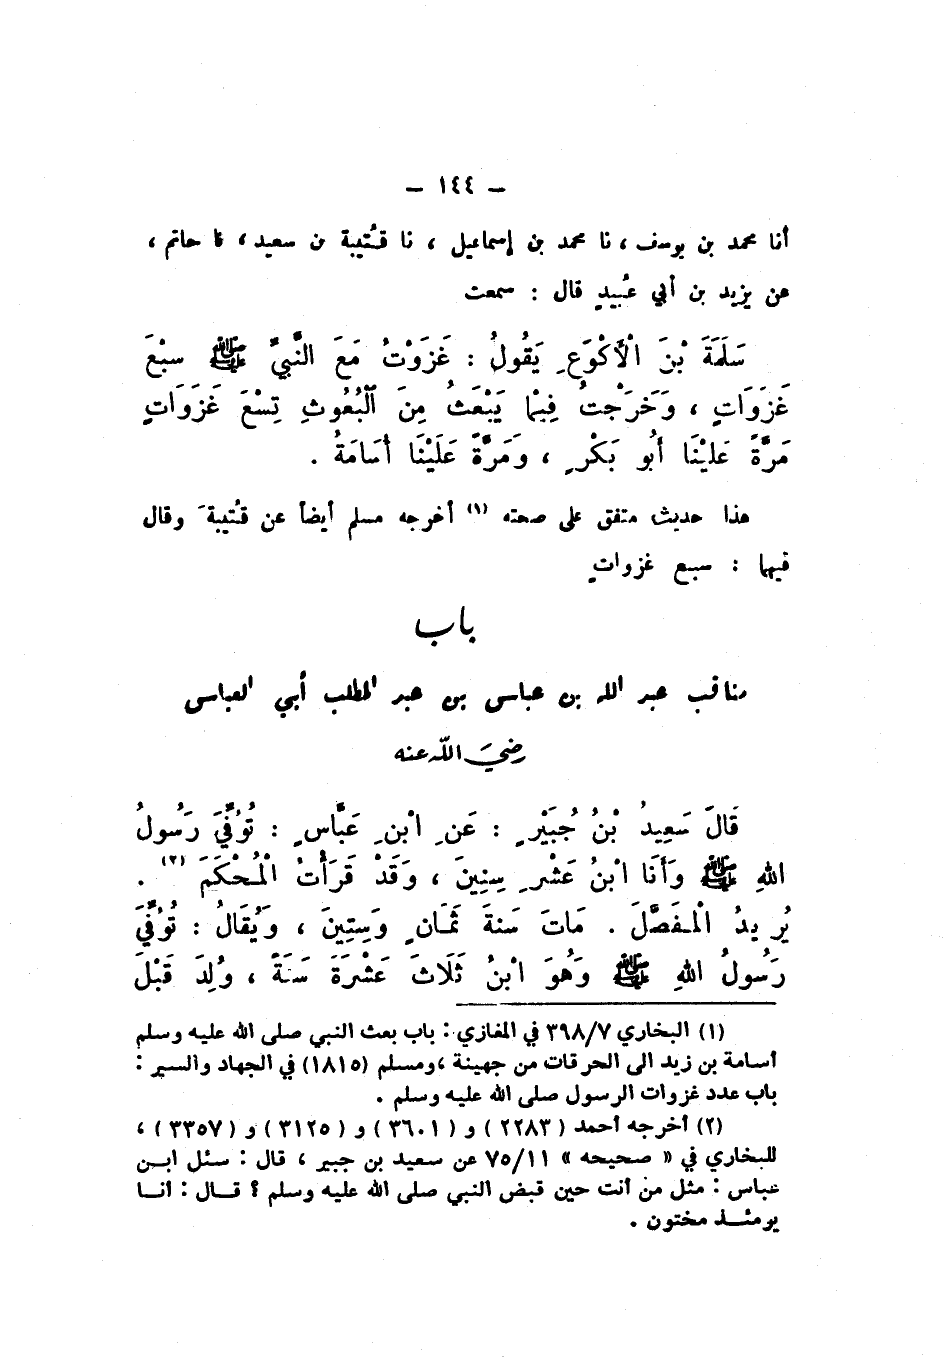 – ١٤٤ –
أنا محمد بن يوسف ، نا محمد بن إسماعيل ، نا قُتيبة بن سعيد ، نا حاتم ،
عن يزيد بن أبي عُبيدٍ قال : سمعت
سَلَمَةَ بْنَ الْأَكْوَعِ يَقُولُ : غَزَوْتُ مَعَ النَّبِيِّ ﷺ سبْعَ
غَزَوَاتٍ ، وَخَرَجْتُ فِيمَا يَبْعَثُ مِنَ الْبُعُوثِ تِسْعَ غَزَوَاتٍ
مَرَّةً عَلَيْنَا أَبُو بَكْرٍ ، وَمَرَّةً عَلَيْنَا أُسَامَةُ .
هذا حديث متفق على صحته (١) أخرجه مسلم أيضاً عن قُتيبةَ وقال
فيها : سبع غزواتٍ
باب
مناقب عبد الله بن عباس بن عبد المطلب أبي العباس
رضيَ الله عنه
قَالَ سَعِيدُ بْنُ جُبَيْرٍ : عَنِ ابْنِ عَبَّاسٍ : تُوُفِّيَ رَسُولُ
اللهِ ﷺ وَأَنَا ابْنُ عَشْرِ سِنِينَ ، وَقَدْ قَرَأْتُ الْمُحْكَمَ (٢) .
يُرِيدُ الْمفَصَّلَ . مَاتَ سَنةَ ثَمَانٍ وَسِتِينَ ، وَيُقَالُ : تُوُفِّيَ
رَسُولُ اللهِ ﷺ وَهُوَ ابْنُ ثَلَاثَ عَشْرَةَ سَنَةً ، وُلِدَ قَبْلَ
(١) البخاري ٣٩٨/٧ في المغازي : باب بعث النبي صلى الله عليه وسلم
أسامة بن زيد الى الحرقات من جهينة ،ومسلم (١٨١٥) في الجهاد والسير :
باب عدد غزوات الرسول صلى الله عليه وسلم .
(٢) أخرجه أحمد ( ٢٢٨٣ ) و ( ٣٦٠١ ) و ( ٣١٢٥ ) و ( ٣٣٥٧ ) ،
للبخاري في « صحيحه » ٧٥/١١ عن سعيد بن جبير ، قال : سئل ابن
عباس : مثل من أنت حين قبض النبي صلى الله عليه وسلم ؟ قال : أنا
يومئذ مختون .